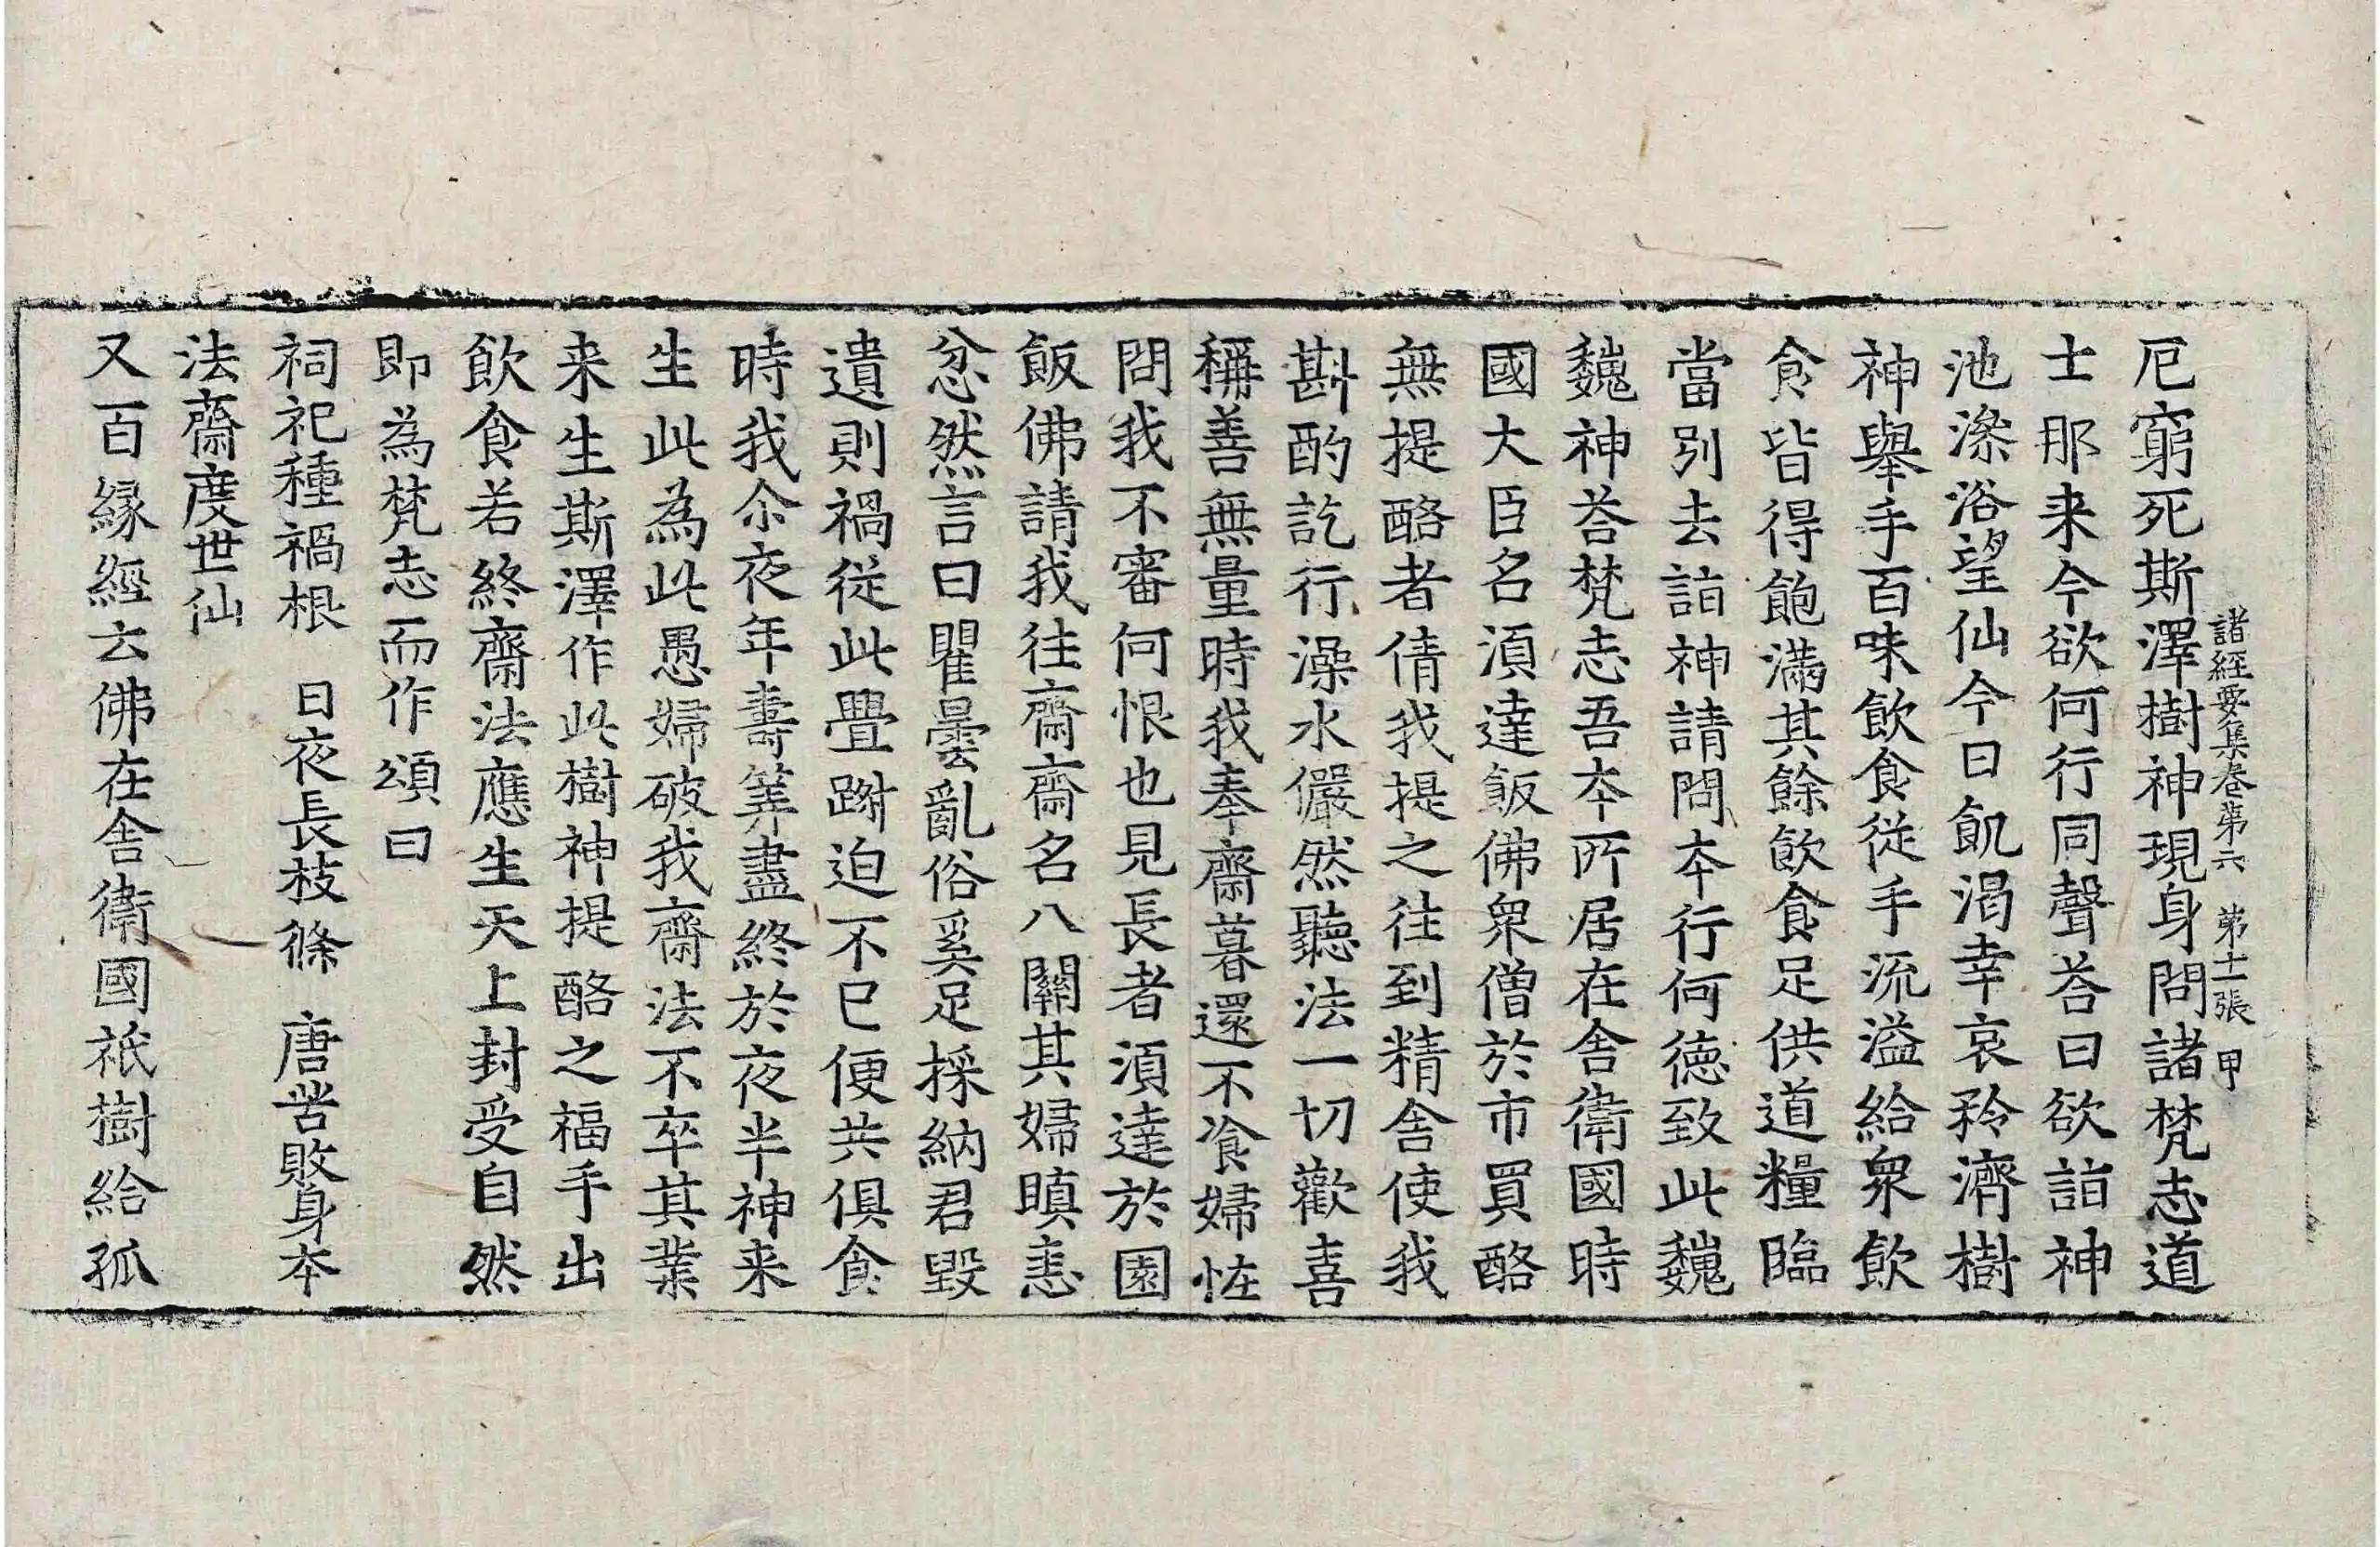 諸經要集卷第六 第十一張 甲
厄窮死斯澤樹神現身問諸梵志道
士那来今欲何行同聲荅曰欲詣神
池澡浴望仙今日飢渴幸哀矜濟樹
神舉手百味飲食從手流溢給衆飲
食皆得飽滿其餘飲食足供道糧臨
當別去詣神請問夲行何徳致此巍
巍神荅梵志吾夲所居在舎衛國時
國大臣名湏達飯佛衆僧於市買酪
無提酪者倩我提之往到精舎使我
斟酌訖行澡水儼然聽法一切歡喜
稱善無量時我奉齋暮還不飡婦恠
問我不審何恨也見長者湏達於園
飯佛請我往齋齋名八關其婦瞋恚
忿然言曰瞿曇亂俗奚足採納君毀
遺則禍從此亹跗迫不已便共俱食
時我尒夜年壽筭盡終於夜半神来
生此為此愚婦破我齋法不卒其業
来生斯澤作此樹神提酪之福手出
飲食若終齋法應生天上封受自然
即為梵志而作頌曰
祠祀種禍根 日夜長枝條 唐苦敗身夲
法齋度世仙
又百縁經云佛在舎衛國祇樹給孤